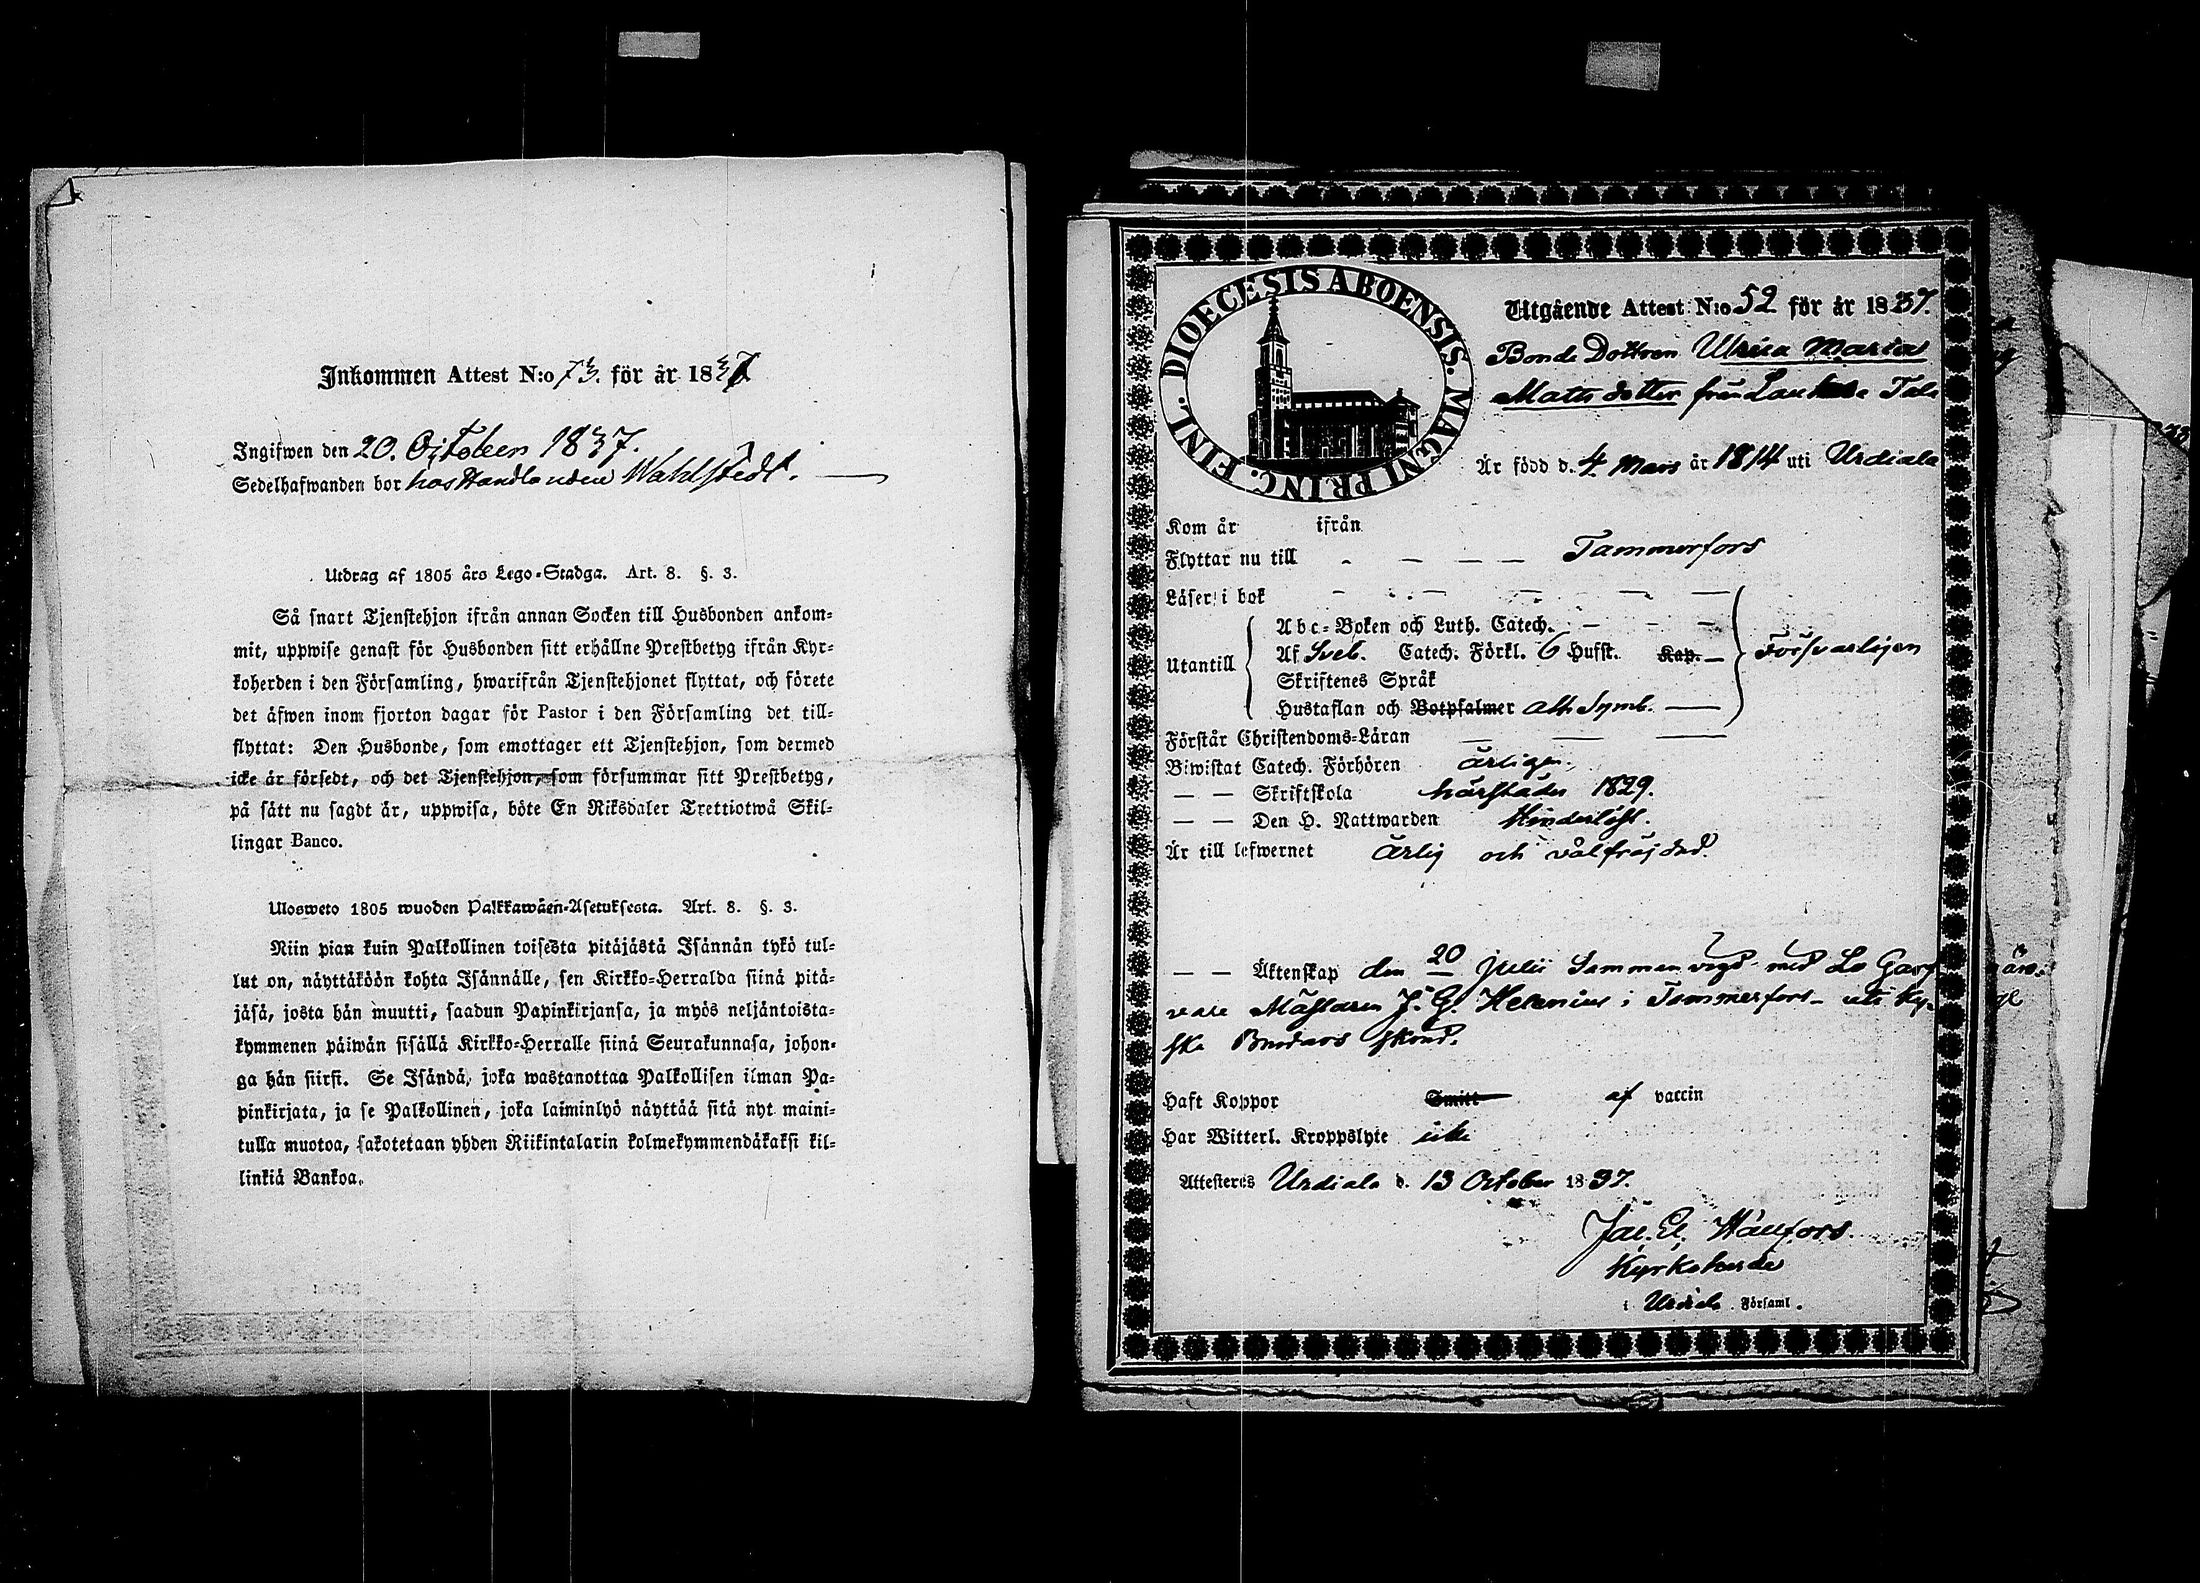 Inkommen Attest N:o 73. för år 1837
Ingifwen den 20. October 1837.
Sedelhafwanden bor hos Handlanden Wahlstedt.
Utdrag af 1805 års Lego-Stadga. Art. 8. §. 3.
Så snart Tjenstehjon ifrån annan Socken till Husbonden ankom-
mit, uppwise genast för Husbonden sitt erhållne Prestbetyg ifrån Kyr-
koherden i den Församling, hwarifrån Tjenstehjonet flyttat, och förete
det äfwen inom fjorton dagar för Pastor i den Församling det till-
flyttat: Den Husbonde, som emottager ett Tjenstehjon, som dermed
icke är försedt, och det Tjenstehjon, som försummar sitt Prestbetyg,
på sätt nu sagdt är, uppwisa, böte En Riksdaler Trettiotwå Skil-
lingar Banco.
Ulosweto 1805 wuoden Palkkawäen-Asetuksesta. Art. 8. §. 3.
Niin pian kuin Palkollinen toisesta pitäjästä Isännän tykö tul-
lut on, näyttäköön kohta Isännälle, sen Kirkko-Herralda siinä pitä-
jäsä, josta hän muutti, saadun Papinkirjansa, ja myös neljäntoista-
kymmenen päiwän sisällä Kirkko-Herralle siinä Seurakunnasa, johon-
ga hän siirsi. Se Isändä, joka wastanottaa Palkollisen ilman Pa-
pinkirjata, ja se Palkollinen, joka laiminlyö näyttää sitä nyt maini-
tulla muotoa, sakotetaan yhden Riikintalarin kolmekymmendäkaksi kil-
linkiä Bankoa.
DIOECESIS ABOENSIS. MAGNI PRINC. FINL.
Utgående Attest N:o 52 för år 1837.
Bonde Dottren Ulrica Maria
Matts dotter från
Är född d. 4 Mars år 1814 uti Urdiala
Kom år ifrån
Flyttar nu till Tammerfors
Läser i bok
Utantill
Abc-Boken och Luth. Catech.
Af Sveb. Catech. Förkl. 6 Hufst. Kap.
Skriftenes Språk
Hustaflan och Botpsalmer Ath. Symb.
Försvarligen
Förstår Christendoms-Läran
Biwistat Catech. Förhören årligen.
— — Skriftskola härstädes 1829.
— — Den H. Nattwarden Hinderlöst.
Är till lefwernet ärlig och välfräjdad.
— — Äktenskap den 20 Julii Sammanvigd med Lo Garf
vare Mästaren J. G. Helenius i Tammerfors uti Ky-
ske Brudars stånd.
Haft Koppor Smitt af vaccin
Har Witterl. Kroppslyte icke
Attesteres Urdiala d. 13 October 1837.
Jac. El.
Kyrkoherde
i Urdiala Församl.